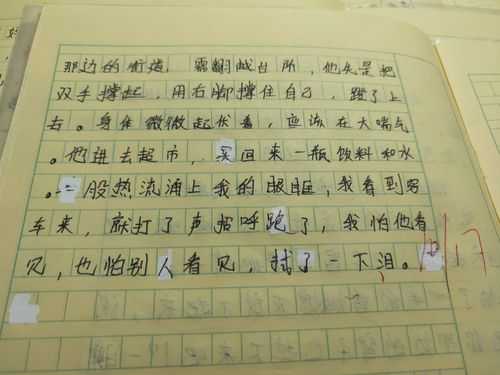 那边的街道，需翻越台所，他先是把
双手撑起，用右脚撑住自己，蹬了上
去。身体微微起伏着，应该在大喘气
。他进去超市，买回来一瓶饮料和水
。一股热流涌上我的眼眶，我看到
车来，就打了声招呼跑了，我怕他看
见，也怕别人看见，拭了一下泪。